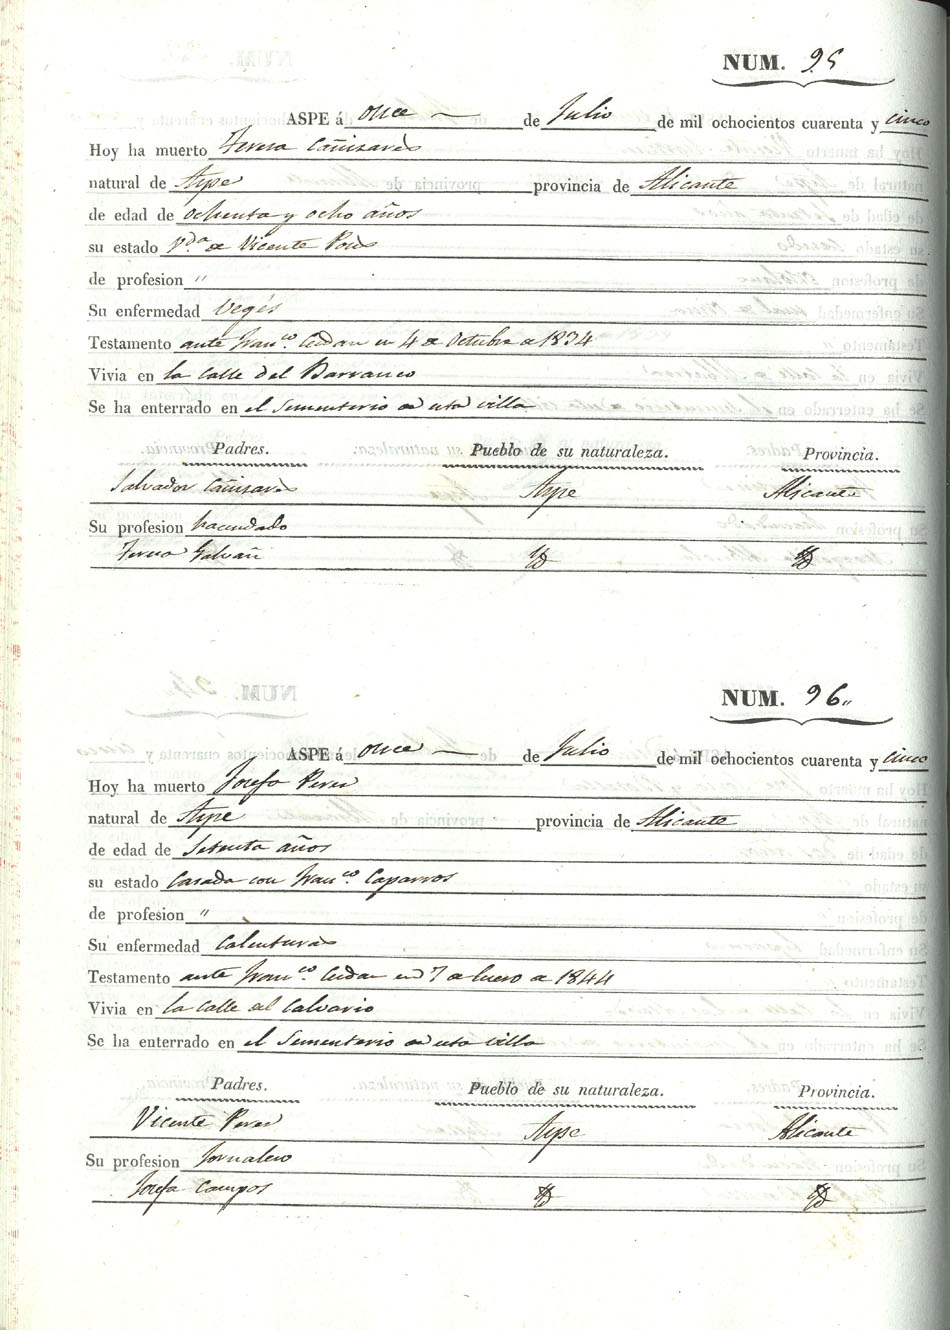 NUM. 95
ASPE á once de Julio de mil ochocientos cuarenta y cinco
Hoy ha muerto Teresa Cañizares
natural de Aspe provincia de Alicante
de edad de ochenta y ocho años
su estado V.da de Vicente
de profesion "
Su enfermedad vegés
Testamento ante Fran.co en 4 de Octubre de 1834
Vivia en la Calle del Barranco
Se ha enterrado en el Sementerio de esta villa
Padres. Pueblo de su naturaleza. Provincia.
Salvador Cañizares Aspe Alicante
Su profesion hacendado
Teresa Galvañ
NUM. 96"
ASPE á once de Julio de mil ochocientos cuarenta y cinco
Hoy ha muerto Josefa Perez
natural de Aspe provincia de Alicante
de edad de Setenta años
su estado Casada con Fran.co Caparros
de profesion "
Su enfermedad Calenturas
Testamento ante Fran.co en 7 de Enero de 1844
Vivia en la Calle del Calvario
Se ha enterrado en el Sementerio de esta villa
Padres. Pueblo de su naturaleza. Provincia.
Vicente Perez Aspe Alicante
Su profesion Jornalero
Josefa Campos